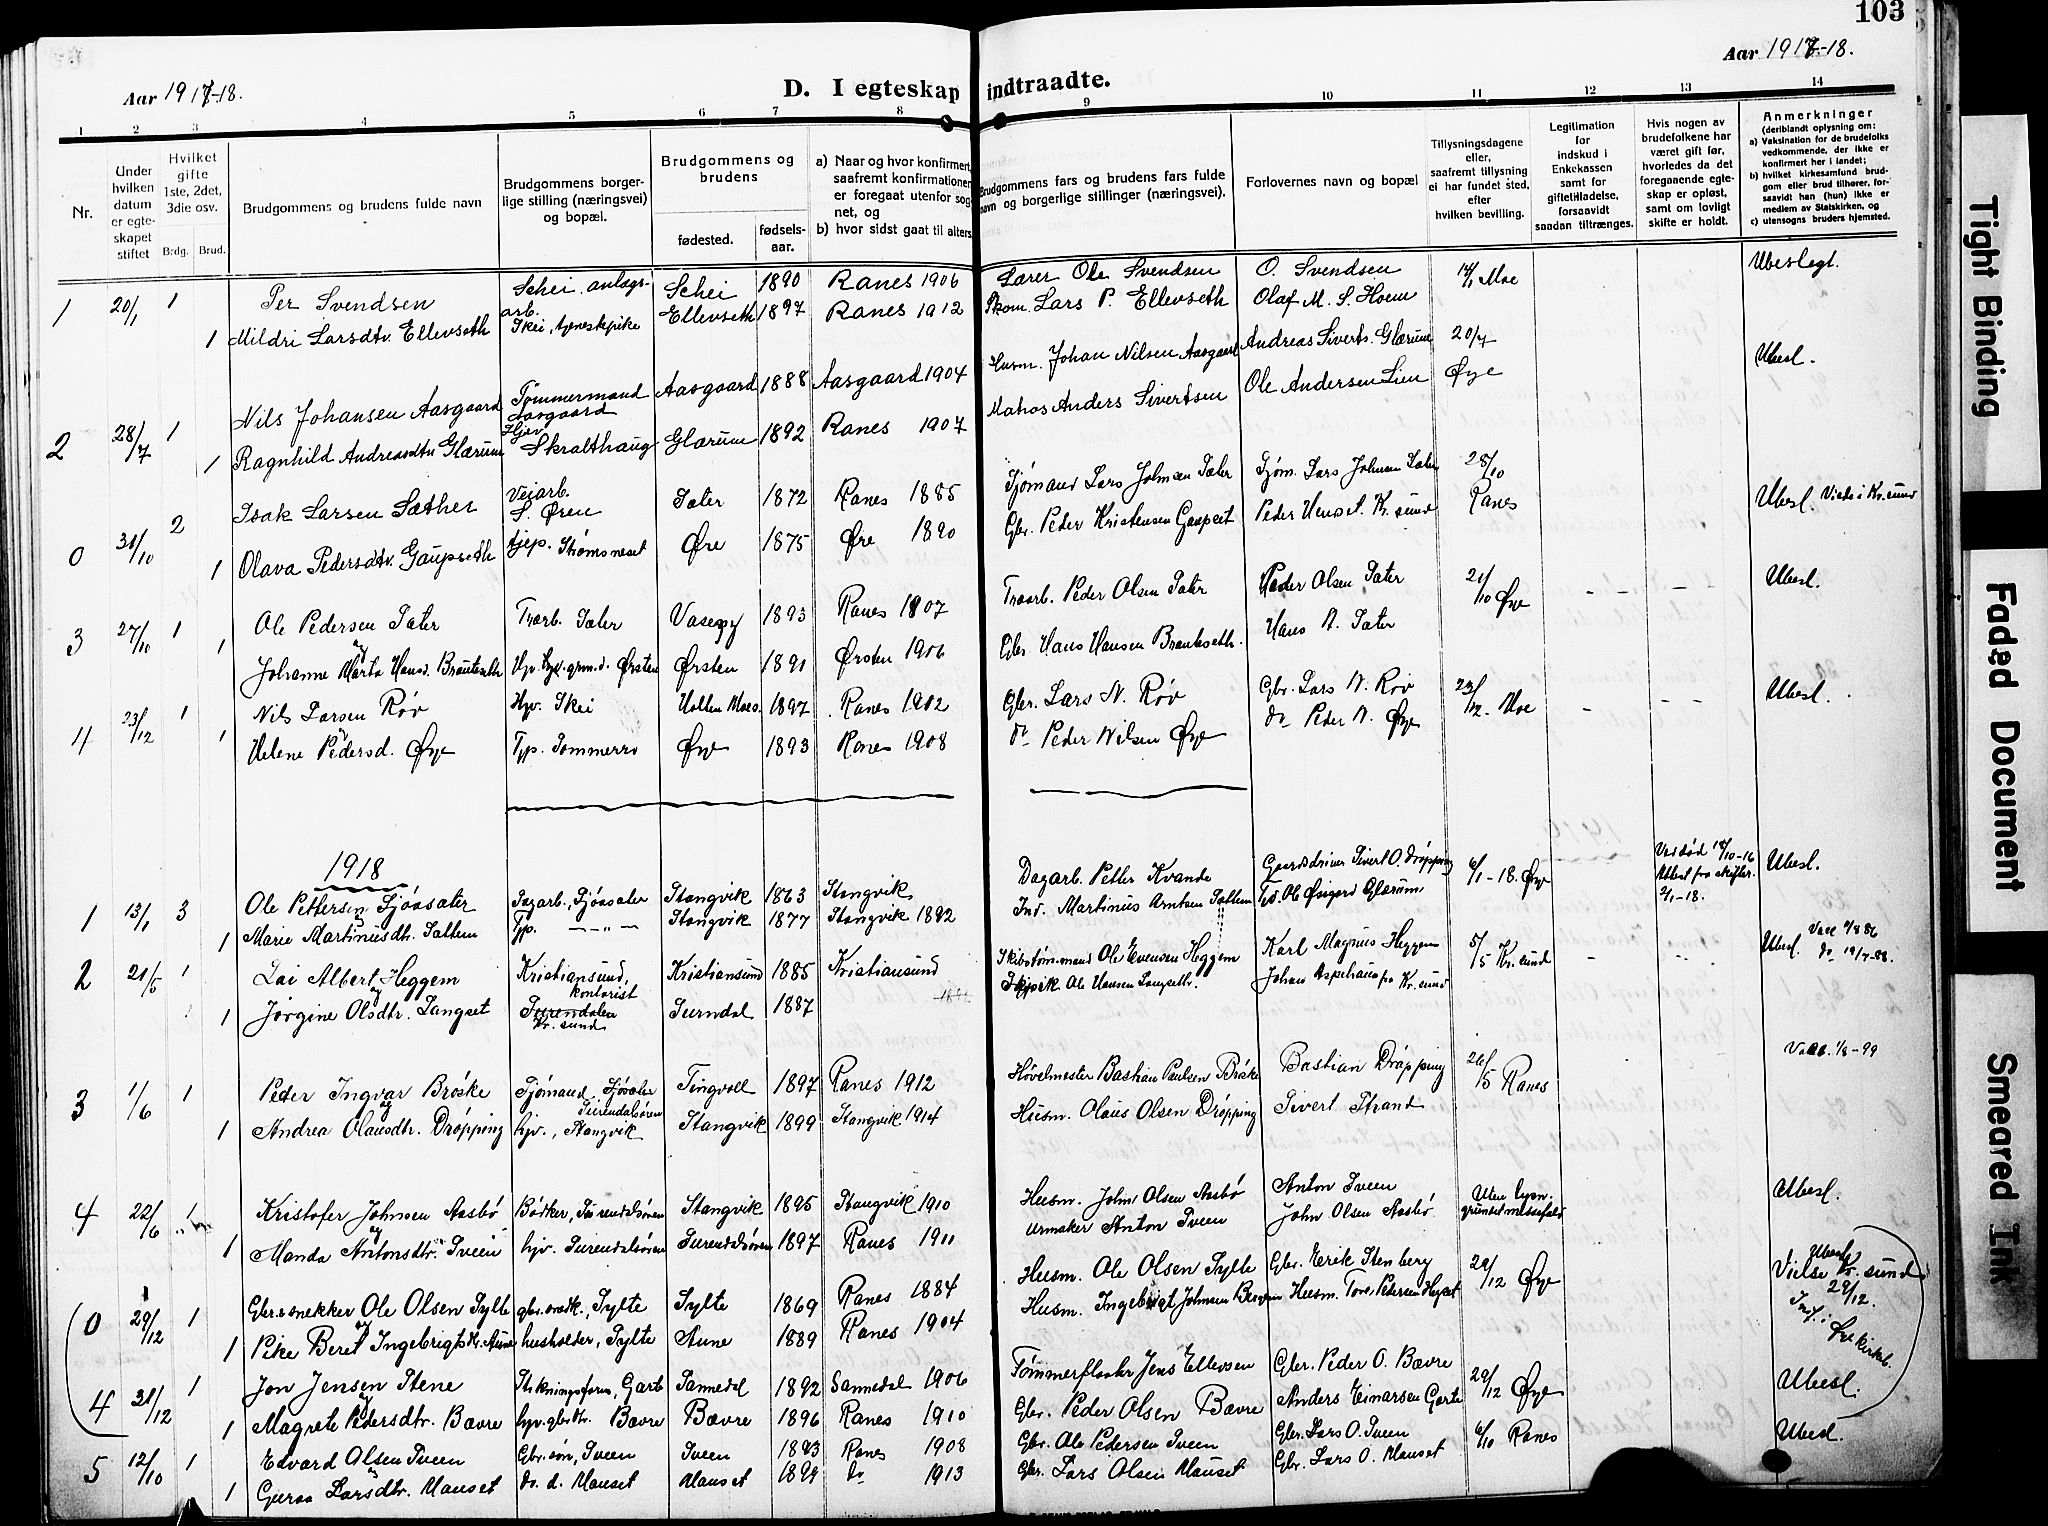 103
Aar 1917-18.
Aar 1917-18.
D. I egteskap indtraadte.
1 2 3 4 5 6 7 8 9 10 11 12 13 14
Nr.
Under hvilken datum er egteskapet stiftet
Hvilket gifte 1ste, 2det, 3die osv.
Brdg. Brud.
Brudgommens og brudens fulde navn
Brudgommens borgerlige stilling (næringsvei) og bopæl.
Brudgommens og brudens
fødested. fødselsaar.
a) Naar og hvor konfirmert, saafremt konfirmationen er foregaat utenfor sognet, og
b) hvor sidst gaat til alters
Brudgommens fars og brudens fars fulde navn og borgerlige stillinger (næringsvei).
Forlovernes navn og bopæl
Tillysningsdagene eller, saafremt tillysning ei har fundet sted, efter hvilken bevilling.
Legitimation for indskud i Enkekassen samt for giftetilladelse, forsaavidt saadan tiltrænges.
Hvis nogen av brudefolkene har været gift før, hvorledes da det foregaaende egteskap er opløst, samt om lovligt skifte er holdt.
Anmerkninger
(deriblandt oplysning om:
a) Vaksination for de brudefolks vedkommende, der ikke er konfirmert her i landet;
b) hvilket kirkesamfund brudgom eller brud tilhører, forsaavidt han (hun) ikke er medlem av Statskirken, og
c) utensogns bruders hjemsted.
1 20/1 1 Per Svendsen Schei anlægsarb. Schei 1890 Ranes 1906 Lærer Ole Svendsen O. Svendsen 14/1 Moe Ubeslegt.
1 Mildri Larsdtr. Ellevseth Skei, tjenestepike Ellevseth 1897 Ranes 1912 Lars P. Ellevseth Olaf M. S. Hoem
2 28/7 1 Nils Johansen Aasgaard Tømmermand Aasgaard Aasgaard 1888 Aasgaard 1904 Husm. Johan Nilsen Aasgaard Andreas Siverts. Glærum 20/7 Øye Ubesl.
1 Ragnhild Andreasdtr Glærum Skralthaug Glærum 1892 Ranes 1907 Anders Sivertsen Ole Andersen Lien
0 31/10 2 Isak Larsen Sæther Veiarb. S. Øren Sæter 1872 Ranes 1885 Sjømand Lars Johnsen Sæter Sjøm. Lars Johnsen Sæter 28/10 Ranes Ubesl. Viede i Kr.sund
1 Olava Pedersdtr. Gaupseth Strømsneset Øre 1875 Øre 1890 Gbr. Peder Kristensen Gaupset Peder Henset. Kr. sund
3 27/10 1 Ole Pedersen Sæter Sæter 1893 Ranes 1907 Peder Olsen Sæter Peder Olsen Sæter 21/10 Øye - - - Ubesl.
og
1 Johanne Marta Hansd. Brauteseth Ørsten Ørsten 1891 Ørsten 1906 Gbr. Hans Hansen Brauteseth. Hans N. Sæter
4 23/12 1 Nils Larsen Røv Skei Hollen Moes. 1897 Ranes 1912 Gbr. Lars N. Røv Gbr. Lars N. Røv 23/12 Moe - - - Ubesl.
og
1 Helene Pedersd. Øye Sommerro Øye 1893 Ranes 1908 Do Peder Nilsen Øye do Peder N. Øye
1918
1 13/1 3 Ole Pettersen Sjøsæter Dagarb., Sjøsæter Stangvik 1863 Stangvik Dagarb. Petter Kvande Gaardsdriver Sivert O. Drøpping 6/1-18. Øye Ubesl.
1 Marie Martinusdtr. Saltem - „ - Stangvik 1877 Stangvik 1892 Ind. Martinus Arntsen Saltem
2 21/5 1 Lai Albert Heggem Kristiansund, kontorist Kristiansund 1885 Kristiansund Skibstømmermand Ole Evensen Heggem Karl Magnus Heggem 5/5 Kr. sund Ubesl.
og
1 Jørgine Olsdtr. Langset Surendalen Kr. sund Surndal 1887 Ole Hansen Langseth. Johan Aspehaug fra Kr. sund
3 1/6 1 Peder Ingvar Brøske Sjømand, Sjøsæter Surendalsøren Tingvoll 1897 Ranes 1912 Høvelmester Bastian Paulsen Brøske Bastian Drøpping 26/5 Ranes Vacc. 1/8-99
og
1 Andrea Olausdtr. Drøpping hjv., Stangvik Stangvik 1899 Stangvik 1914 Husm. Olaus Olsen Drøpping Sivert Strand
4 22/6 1 Kristofer Johnsen Aasbø Bødker, Surendalsøren Stangvik 1895 Stangvik 1910 Husm. John Olsen Aasbø Anton Sveen Uten lysn. Ubesl.
og
1 Manda Antonsdtr. Sveen hjv. Surendalsøren Surendalsøren 1897 Ranes 1911 Urmaker Anton Sveen John Olsen Aasbø
0 29/12 1 Gbr. snekker Ole Olsen Sylte gbr. snedk., Sylte Sylte 1869 Ranes 1884 Husm. Ole Olsen Sylte Gbr. Erik Stenberg 22/12 Øye Ubesl. Vielse Kr. sund 29/12.
og
1 Pike Beret Ingebrigtsdtr. Aune husholder, Sylte Aune 1889 Ranes 1904 Husm. Ingebrigt Johnsen Husm. Tore Petersen
4 31/12 1 Jon Jensen Stene Sannedal 1892 Sannedal 1906 Tømmerfløter Jens Ellevsen Gbr. Peder O. Bævre 29/12 Øye Ubesl.
og
1 Magrete Pedersdtr. Bævre hjv. gbr.dtr. Bævre Bævre 1896 Ranes 1910 Gbr. Peder Olsen Bævre Anders Einarsen Garte
5 12/10 1 Edvard Olsen Sveen Gbr. søn, Sveen Sveen 1893 Ranes 1908 Gbr. Ole Pedersen Sveen Gbr. Lars O. Sveen 6/10 Ranes Ubesl.
og
1 Guroa Larsdtr. Mauset do. d. Mauset Mauset 1899 do 1913 Gbr. Lars Olsen Mauset Gbr. Lars O. Mauset
Tight Binding
Faded Document
Smeared Ink